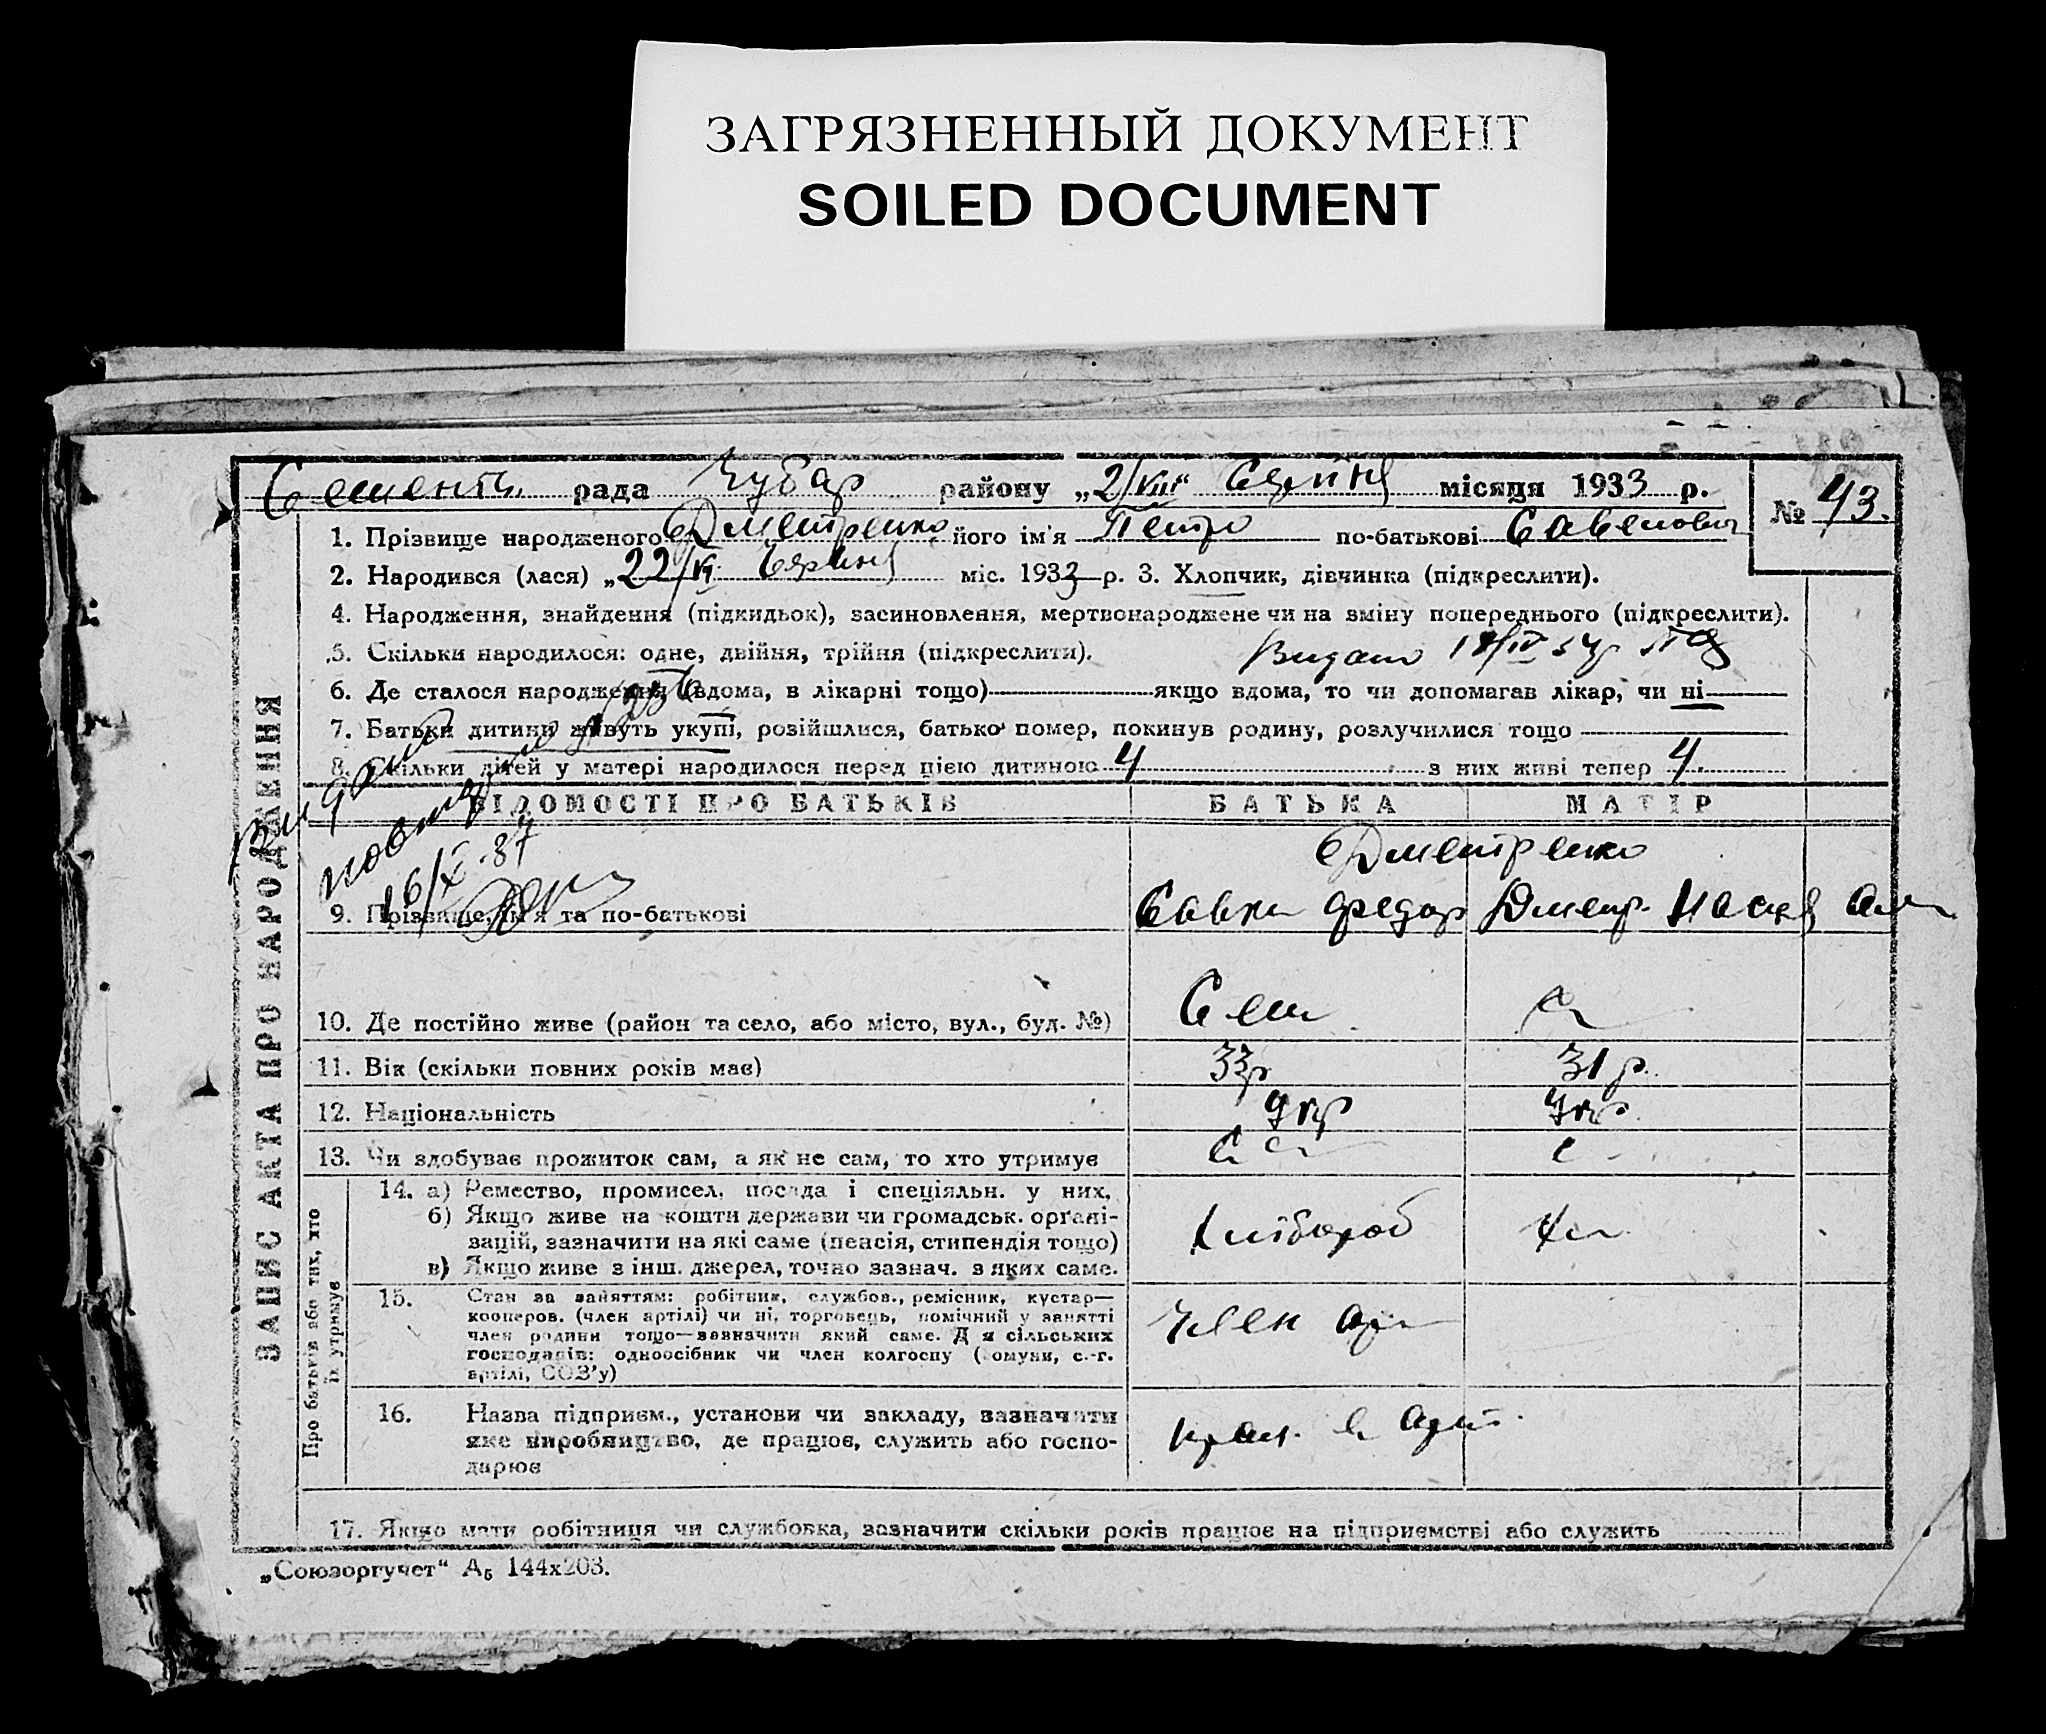 ЗАГРЯЗНЕННЫЙ ДОКУМЕНТ
SOILED DOCUMENT
рада Чубар району „2/VIII“ Серпня місяця 1933 р.
№ 43.
1. Прізвище народженого Дметренко його ім'я Петро по-батькові Савелович
2. Народився (лася) „22/VII міс. 1933 р. 3. Хлопчик, дівчинка (підкреслити).
4. Народження, знайдення (підкидьок), засиновлення, мертвонароджене чи на зміну попереднього (підкреслити).
5. Скільки народилося: одне, двійня, трійня (підкреслити). Видано 18/IV 34р
6. Де сталося народження (вдома, в лікарні тощо) якщо вдома, то чи допомагав лікар, чи ні
7. Батьки дитини живуть укупі, розійшлися, батько помер, покинув родину, розлучилися тощо
8. Скільки дітей у матері народилося перед цією дитиною 4 з них живі тепер 4
ВІДОМОСТІ ПРО БАТЬКІВ БАТЬКА МАТІР
повторно
16/X-37
Дметренко
9. Прізвище, ім'я та по-батькові Савка Федор Дметр.
10. Де постійно живе (район та село, або місто, вул., буд. №) Сем
11. Вік (скільки повних років має) 33р 31р.
12. Національність Укр Укр.
13. Чи здобуває прожиток сам, а як не сам, то хто утримує
14. а) Ремество, промисел, посада і спеціяльн. у них,
б) Якщо живе на кошти держави чи громадськ. органі-
зацій, зазначити на які саме (пенсія, стипендія тощо)
в) Якщо живе з інш. джерел, точно зазнач. з яких саме.
Хлібороб
15. Стан за заняттям: робітник, службов., ремісник, кустар—
кооперов. (член артілі) чи ні, торговець, помічний у занятті
член родини тощо—зазначити який саме. Д я сільських
господарів: одноосібник чи член колгоспу ( омуни, с.-г.
артілі, СОЗ'у)
Член
16. Назва підприєм., установи чи закладу, зазначити
яке виробництво, де працює, служить або госпо-
дарює
в арт.
17. Якщо мати робітниця чи службовка, зазначити скільки років працює на підприємстві або служить
ЗАПИС АКТА ПРО НАРОДЖЕННЯ
Про батьків або тих, хто
їх утримує
„Союзоргучет“ А5 144x203.